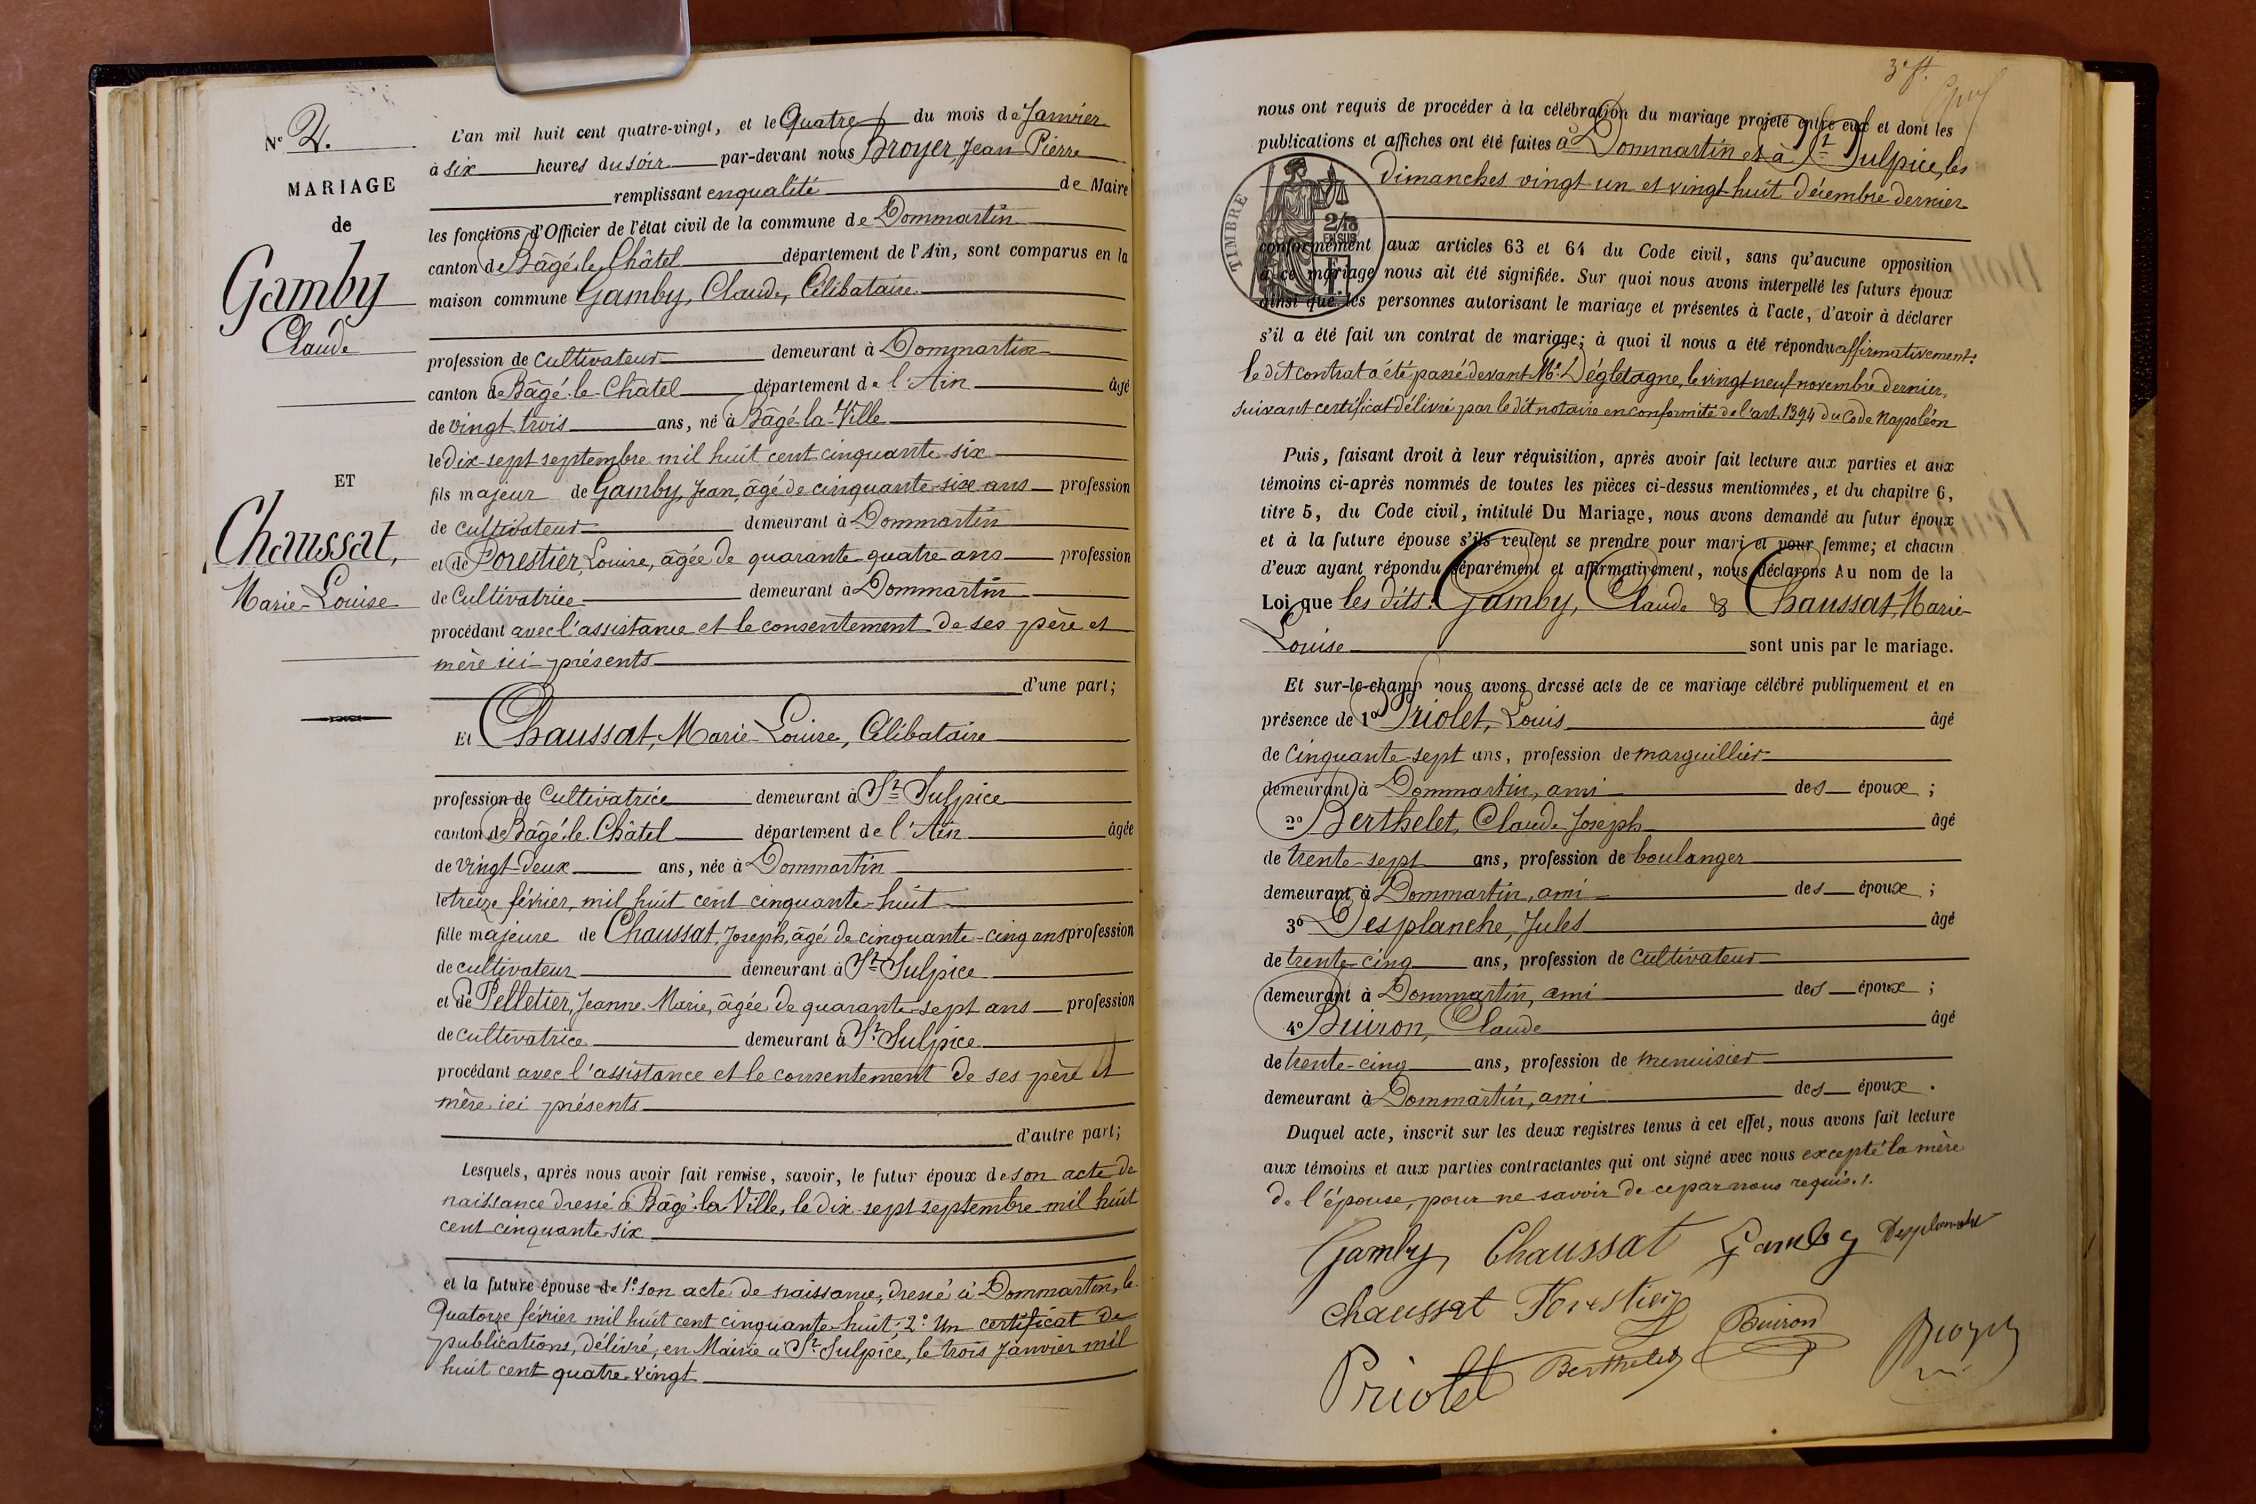 Nº 2.
MARIAGE
de
Gamby
Claude
ET
Chaussat,
Marie-Louise
L'an mil huit cent quatre-vingt, et le Quatre du mois de Janvier
à six heures du soir par-devant nous Broyer, Jean Pierre
remplissant en qualité de Maire
les fonctions d'Officier de l'état civil de la commune de Dommartin
canton de Bâgé-le-Châtel département de l'Ain, sont comparus en la
maison commune Gamby, Claude, Célibataire
profession de cultivateur demeurant à Dommartin
canton de Bâgé-le-Châtel département de l'Ain âgé
de vingt-trois ans, né à Bâgé-la-Ville
le dix-sept septembre mil huit cent cinquante-six
fils majeur de Gamby, Jean, âgé de cinquante-six ans profession
de cultivateur demeurant à Dommartin
et de Forestier, Louise, âgée de quarante-quatre ans profession
de Cultivatrice demeurant à Dommartin
procédant avec l'assistance et le consentement de ses père et
mère ici présents
d'une part;
Et Chaussat, Marie-Louise, Célibataire
profession de Cultivatrice demeurant à St Sulpice
canton de Bâgé-le-Châtel département de l'Ain âgée
de vingt-deux ans, née à Dommartin
le treize février, mil huit cent cinquante-huit
fille majeure de Chaussat, Joseph, âgé de cinquante-cinq ans profession
de cultivateur demeurant à St Sulpice
et de Pelletier, Jeanne Marie, âgée de quarante-sept ans profession
de cultivatrice demeurant à St Sulpice
procédant avec l'assistance et le consentement de ses père et
mère ici présents
d'autre part;
Lesquels, après nous avoir fait remise, savoir, le futur époux de son acte de
naissance dressé à Bâgé-la-Ville, le dix-sept septembre mil huit
cent cinquante-six
et la future épouse de 1º son acte de naissance, dressé à Dommartin, le
Quatorze février mil huit cent cinquante-huit; 2º Un certificat de
publications, délivré, en Mairie à St Sulpice, le trois Janvier mil
huit cent quatre-vingt
3e f.
nous ont requis de procéder à la célébration du mariage projeté entre eux et dont les
publications et affiches ont été faites à Dommartin et à St Sulpice, les
dimanches vingt-un et vingt-huit décembre dernier
TIMBRE
2/10
EN SUS
F.
conformément aux articles 63 et 64 du Code civil, sans qu'aucune opposition
à ce mariage nous ait été signifiée. Sur quoi nous avons interpellé les futurs époux
ainsi que les personnes autorisant le mariage et présentes à l'acte, d'avoir à déclarer
s'il a été fait un contrat de mariage; à quoi il nous a été répondu affirmativement.
le dit contrat a été passé devant Me Dégletagne, le vingt neuf novembre dernier,
suivant certificat délivré par le dit notaire en conformité de l'art. 1394 du Code Napoléon
Puis, faisant droit à leur réquisition, après avoir fait lecture aux parties et aux
témoins ci-après nommés de toutes les pièces ci-dessus mentionnées, et du chapitre 6,
titre 5, du Code civil, intitulé Du Mariage, nous avons demandé au futur époux
et à la future épouse s'ils veulent se prendre pour mari et pour femme; et chacun
d'eux ayant répondu séparément et affirmativement, nous déclarons Au nom de la
Loi que les dits: Gamby, Claude & Chaussat, Marie-
Louise sont unis par le mariage.
Et sur-le-champ nous avons dressé acte de ce mariage célébré publiquement et en
présence de 1º Priolet, Louis âgé
de Cinquante-sept ans, profession de marguillier
demeurant à Dommartin, ami des époux;
2º Berthelet, Claude-Joseph âgé
de trente-sept ans, profession de boulanger
demeurant à Dommartin, ami des époux;
3º Desplanche, Jules âgé
de trente-cinq ans, profession de Cultivateur
demeurant à Dommartin, ami des époux;
4º Buiron, Claude âgé
de trente-cinq ans, profession de menuisier
demeurant à Dommartin, ami des époux.
Duquel acte, inscrit sur les deux registres tenus à cet effet, nous avons fait lecture
aux témoins et aux parties contractantes qui ont signé avec nous excepté la mère
de l'épouse, pour ne savoir de ce par nous requis.
Gamby Chaussat Gamby Desplanche
Chaussat Forestier
Buiron Broyer
Priolet Berthelet